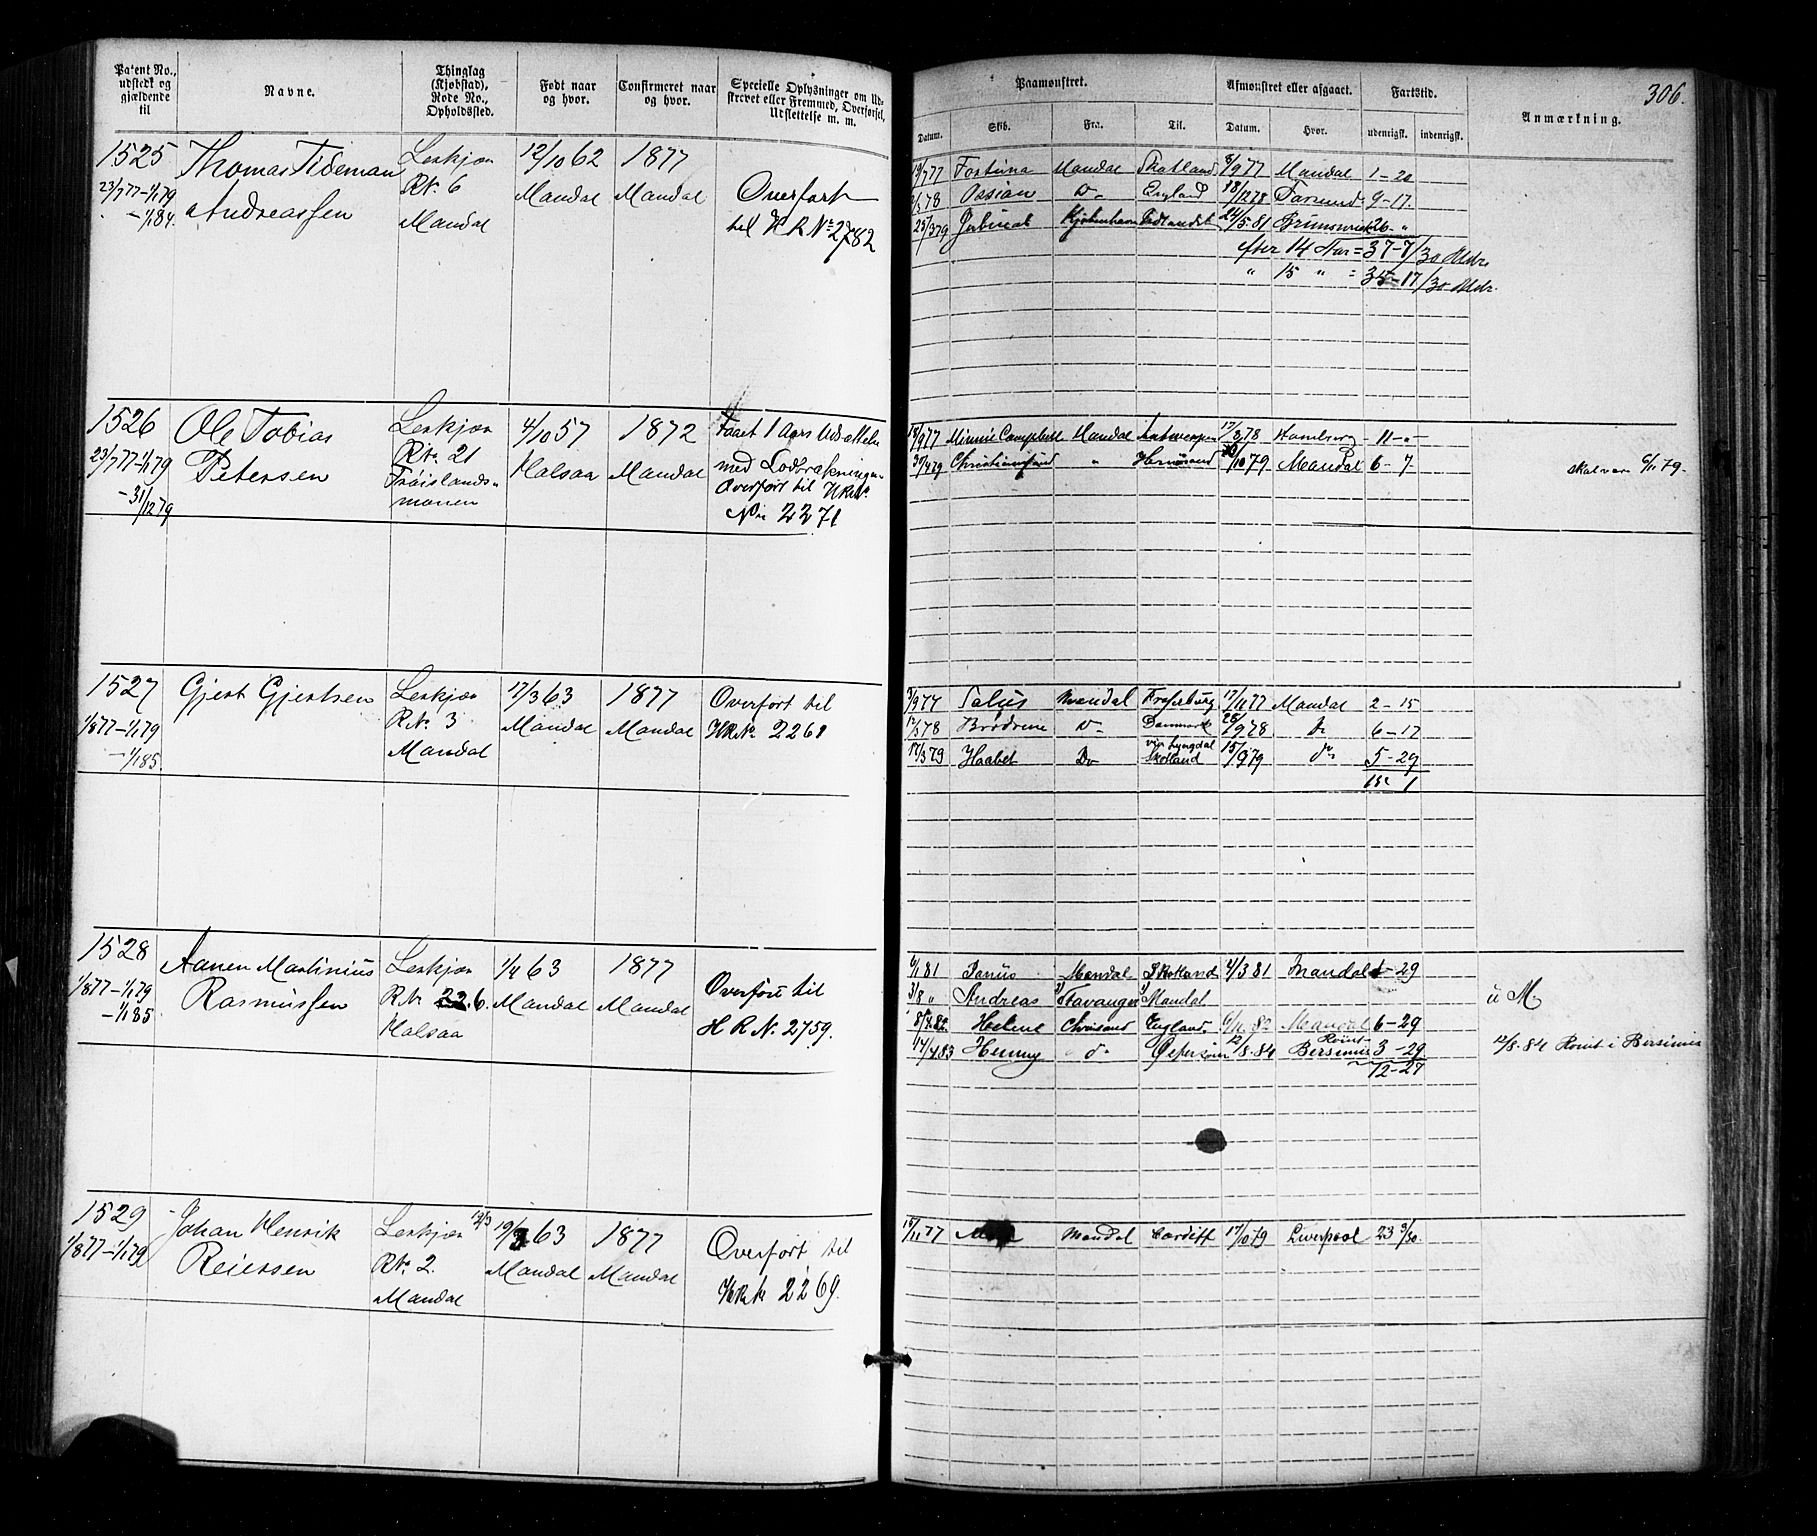 306.
Patent No., udstedt og gjældende til
Navne.
Thinglag (Kjøbstad), Rode No., Opholdssted.
Født naar og hvor.
Confirmeret naar og hvor.
Specielle Oplysninger om Udskrevet eller Fremmed, Overførsel, Udslettelse m. m.
Paamønstret.
Afmønstret eller afgaaet.
Fartstid.
Anmærkning.
Datum. Skib. Fra. Til. Datum. Hvor. udenrigsk. indenrigsk.
1525 Thomas Tideman Leskjær 12/10 62 1877
23/7 77-1/1 79 R№ 6 Mandal Mandal Overført
-1/1 84. Andreassen Mandal til H R № 2782
Fortuna Mandal Skotland 8/9 77 Mandal 1-20
78 Ossian Do England 18/12 78 Farsund 9-17.
25/3 79 Kjøbenhavn 24/5. 81 Brunswick 26-"
efter 14 Aar = 37-7/30 Mdr.
" 15 " = 35-17/30 Mdr.
1526 Ole Tobias Leskjær 4/10 57 1872
23/7 77-1/1 79 Petersen R№ 21 Halsaa Mandal
-31/12 79 Tröislandsmonen
med Lodtrækningen
Overført til H R №
Nr. 2271
9 77 Minnie Campbell Mandal Antwerpen 17/3 78 Hamburg 11-"-
30/4 79 Christianssund " Hernøsand /10 79 Mandal 6-7
6/11 79.
1527 Gjert Gjertsen Leskjær 17/3 63 1877 Overført til
1/8 77-1/1 79 R№ 3 Mandal Mandal H R № 2268
-1/1 85. Mandal
3/9 77 Mandal 17/11 77 Mandal 2-15
78 Brødrene Do Danmark 28/9 78 do 6-17
17/3 79 Haabet Do via Lyngdal Skotland 15/9 79 do 5-29
1528 Aanen Martinius Leskjær 1/4 63 1877
1/8 77-1/1 79 Rasmussen R№ 22 6. Mandal Mandal Overført til
-1/1 85 Halsaa H R №. 2759.
6/1 81 Mandal Skotland 4/3 81 Mandal 1-29
31/8 " Andreas Stavanger Mandal
u M.
82 Helene Chrisand England. 6/11 82 Mandal 6-29
17/4 83 Henny do 12/8. 84 Rømt Bersimis 3-29
12/8. 84 Rømt i Bersimis
12-27
1529 Johan Henrik Leskjær 19/3 19/3 63 1877
1/8 77-1/1 79 Reiersen R№ 2. Mandal Mandal Overført til
Mandal H R № 2269.
15/11 77 Mandal Cardiff 17/10 79 Liverpool 23 3/30